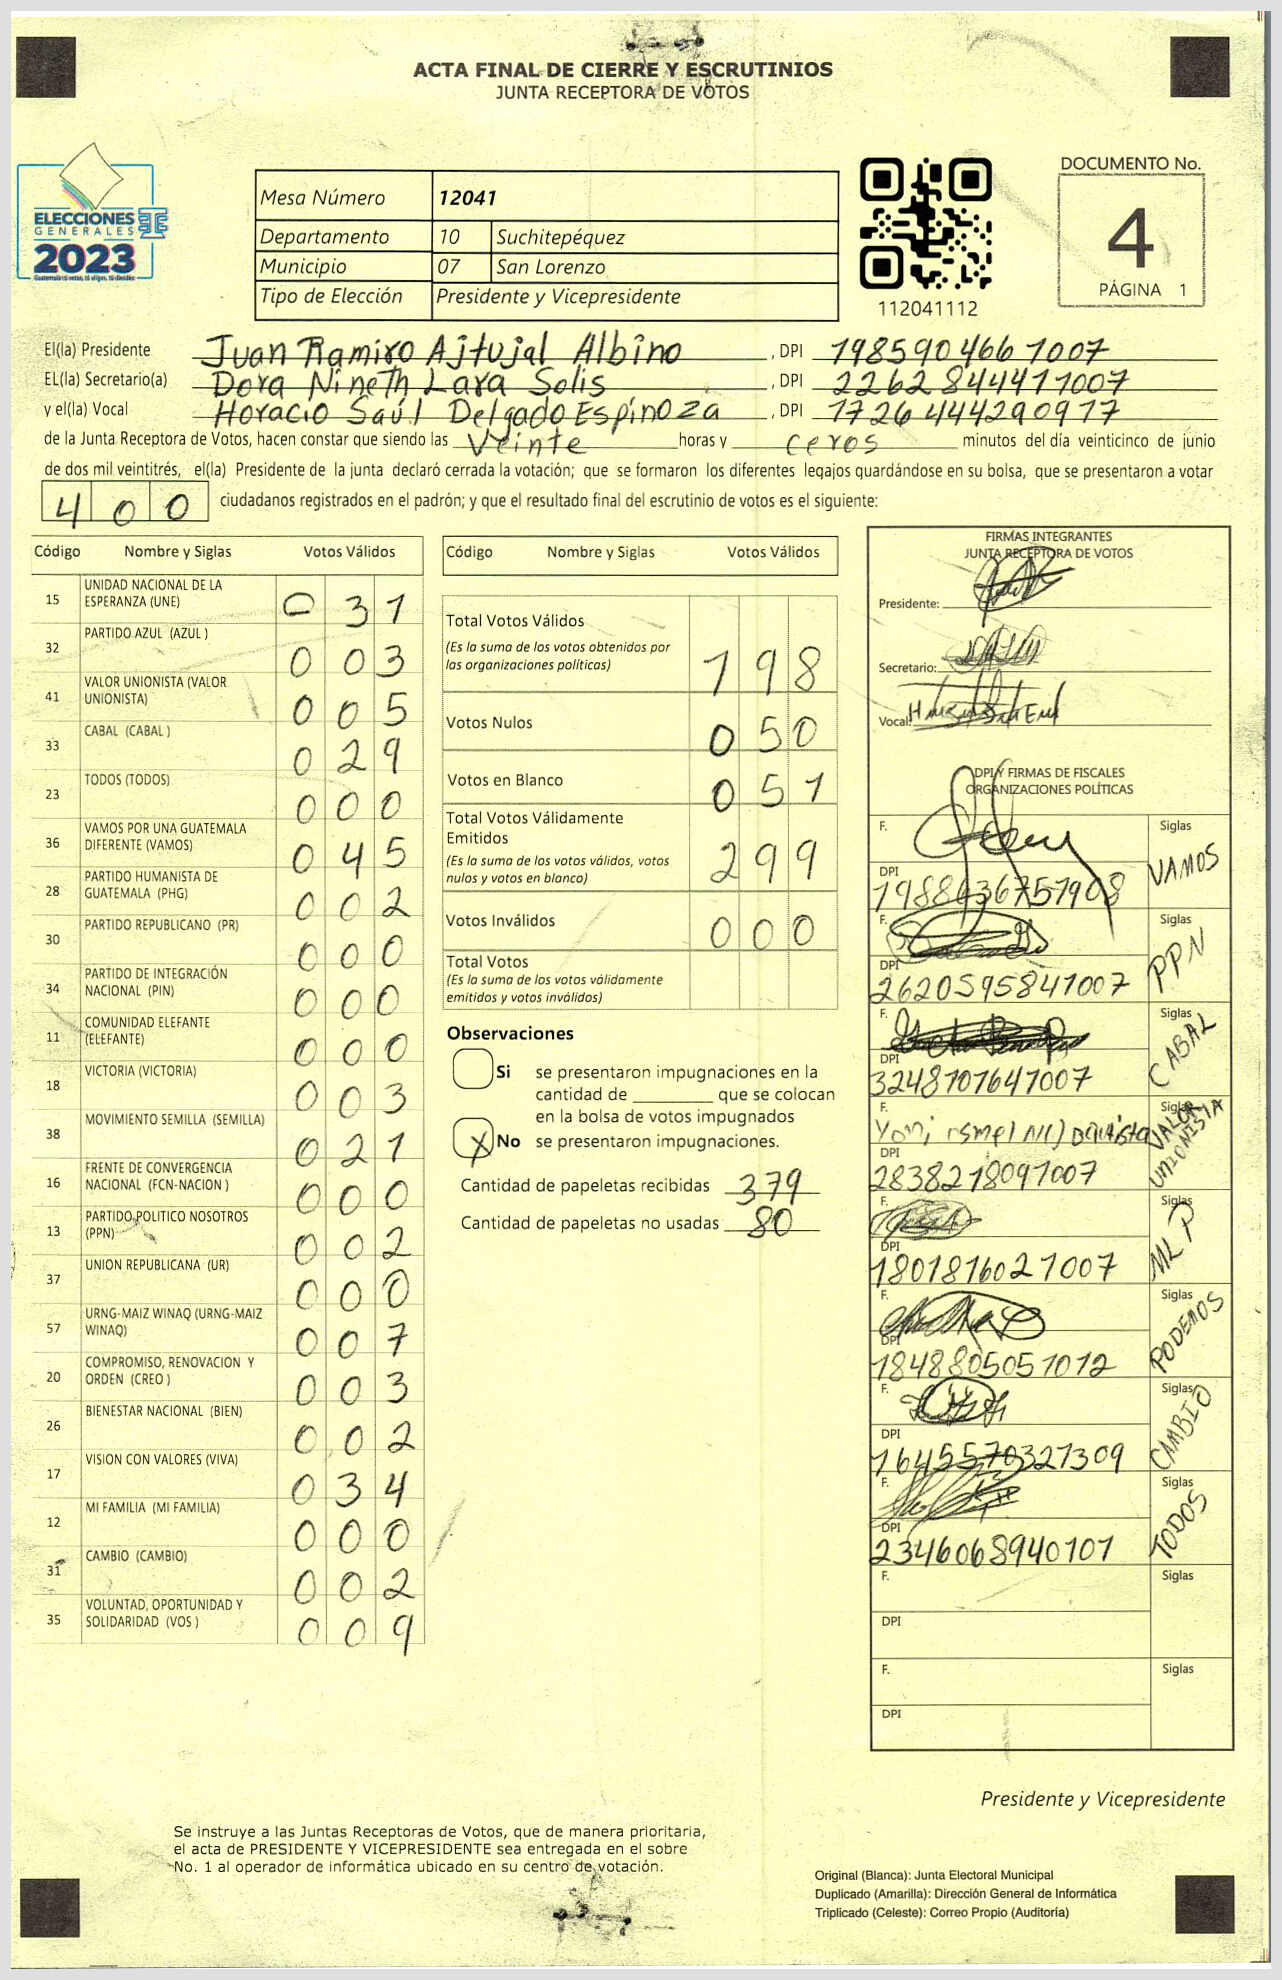 ACTA FINAL DE CIERRE Y ESCRUTINIOS
JUNTA RECEPTORA DE VOTOS
ELECCIONES
GENERALES
2023
Mesa Número 12041
Departamento 10 Suchitepéquez
Municipio 07 San Lorenzo
Tipo de Elección Presidente y Vicepresidente
112041112
DOCUMENTO No.
4
PÁGINA 1
El(la) Presidente Juan Ramiro Ajtujal Albino , DPI 1985904661007
EL(la) Secretario(a) Dora Nineth Lara Solis , DPI 2262844411007
y el(la) Vocal Horacio Saúl Delgado Espinoza , DPI 1726444290917
de la Junta Receptora de Votos, hacen constar que siendo las Veinte horas y ceros minutos del día veinticinco de junio
de dos mil veintitrés, el(la) Presidente de la junta declaró cerrada la votación; que se formaron los diferentes legajos guardándose en su bolsa, que se presentaron a votar
400 ciudadanos registrados en el padrón; y que el resultado final del escrutinio de votos es el siguiente:
Código Nombre y Siglas Votos Válidos
15 UNIDAD NACIONAL DE LA ESPERANZA (UNE) 0 3 1
32 PARTIDO AZUL (AZUL ) 0 0 3
41 VALOR UNIONISTA (VALOR UNIONISTA) 0 0 5
33 CABAL (CABAL ) 0 2 9
23 TODOS (TODOS) 0 0 0
36 VAMOS POR UNA GUATEMALA DIFERENTE (VAMOS) 0 4 5
28 PARTIDO HUMANISTA DE GUATEMALA (PHG) 0 0 2
30 PARTIDO REPUBLICANO (PR) 0 0 0
34 PARTIDO DE INTEGRACIÓN NACIONAL (PIN) 0 0 0
11 COMUNIDAD ELEFANTE (ELEFANTE) 0 0 0
18 VICTORIA (VICTORIA) 0 0 3
38 MOVIMIENTO SEMILLA (SEMILLA) 0 2 1
16 FRENTE DE CONVERGENCIA NACIONAL (FCN-NACION ) 0 0 0
13 PARTIDO POLITICO NOSOTROS (PPN) 0 0 2
37 UNION REPUBLICANA (UR) 0 0 0
57 URNG-MAIZ WINAQ (URNG-MAIZ WINAQ) 0 0 7
20 COMPROMISO, RENOVACION Y ORDEN (CREO ) 0 0 3
26 BIENESTAR NACIONAL (BIEN) 0 0 2
17 VISION CON VALORES (VIVA) 0 3 4
12 MI FAMILIA (MI FAMILIA) 0 0 0
31 CAMBIO (CAMBIO) 0 0 2
35 VOLUNTAD, OPORTUNIDAD Y SOLIDARIDAD (VOS ) 0 0 9
Código Nombre y Siglas Votos Válidos
Total Votos Válidos 1 9 8
(Es la suma de los votos obtenidos por
las organizaciones políticas)
Votos Nulos 0 5 0
Votos en Blanco 0 5 1
Total Votos Válidamente
Emitidos 2 9 9
(Es la suma de los votos válidos, votos
nulos y votos en blanco)
Votos Inválidos 0 0 0
Total Votos
(Es la suma de los votos válidamente
emitidos y votos inválidos)
Observaciones
Si se presentaron impugnaciones en la
cantidad de ________ que se colocan
en la bolsa de votos impugnados
X No se presentaron impugnaciones.
Cantidad de papeletas recibidas 379
Cantidad de papeletas no usadas 80
FIRMAS INTEGRANTES
JUNTA RECEPTORA DE VOTOS
Presidente:
Secretario:
Vocal:
DPI Y FIRMAS DE FISCALES
ORGANIZACIONES POLÍTICAS
F. Siglas VAMOS
DPI 1988636751908
F. Siglas PPN
DPI 2620595841007
F. Siglas CABAL
DPI 3248707641007
F. Siglas VALOR UNIONISTA
DPI 2838218091007
F. Siglas MLP
DPI 1801816021007
F. Siglas PODEMOS
DPI 1848805051012
F. Siglas CAMBIO
DPI 1645570321309
F. Siglas TODOS
DPI 2346068940101
F. Siglas
DPI
F. Siglas
DPI
Presidente y Vicepresidente
Se instruye a las Juntas Receptoras de Votos, que de manera prioritaria,
el acta de PRESIDENTE Y VICEPRESIDENTE sea entregada en el sobre
No. 1 al operador de informática ubicado en su centro de votación.
Original (Blanca): Junta Electoral Municipal
Duplicado (Amarilla): Dirección General de Informática
Triplicado (Celeste): Correo Propio (Auditoría)